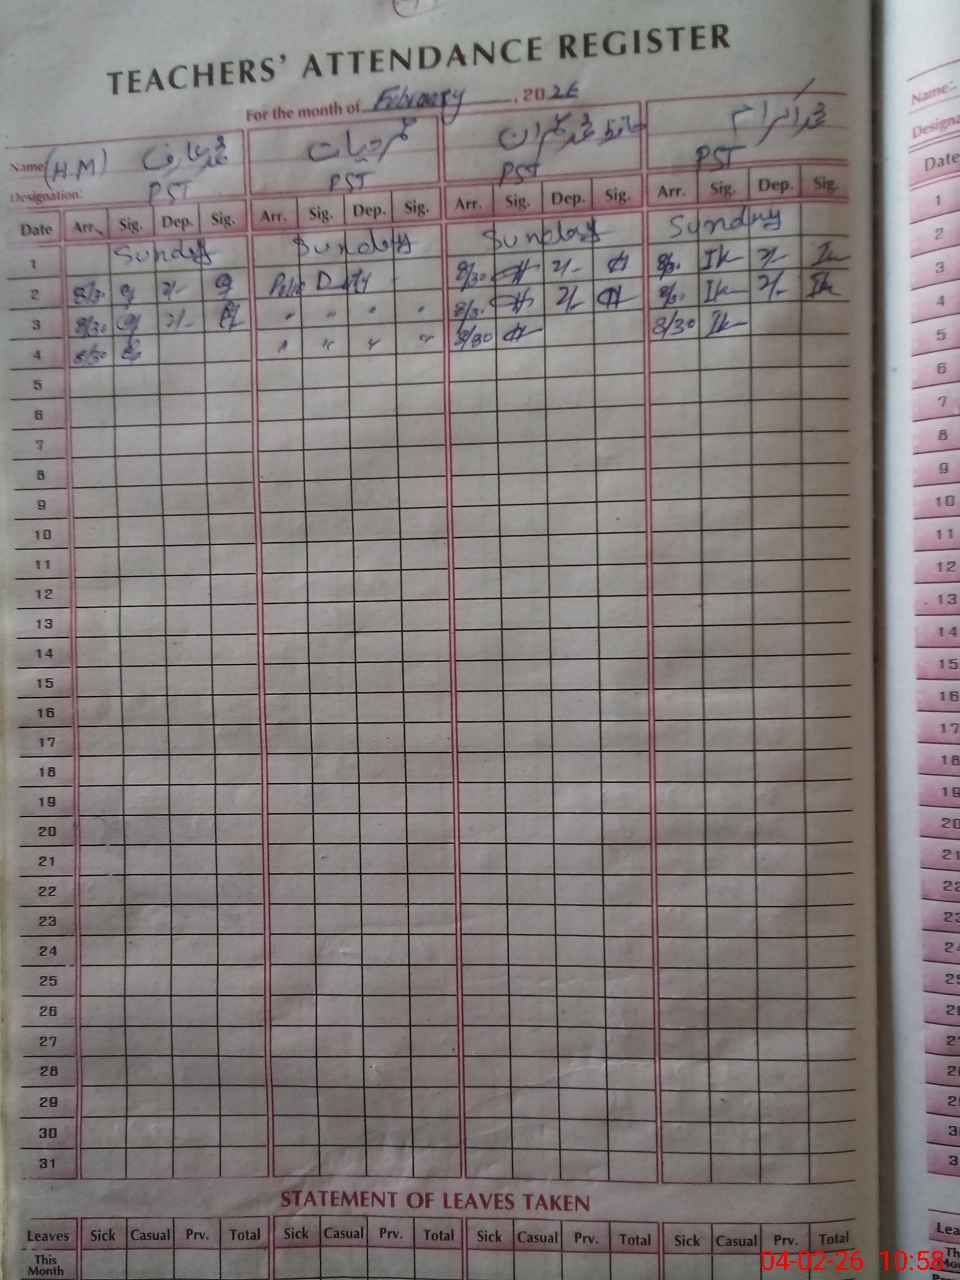 TEACHERS' ATTENDANCE REGISTER
For the month of February, 2026
Name (H.M) محمد عارف عمر حیات حافظ محمد عمران محمد اکرام
Designation: PST PST PST PST
Date Arr. Sig. Dep. Sig. Arr. Sig. Dep. Sig. Arr. Sig. Dep. Sig. Arr. Sig. Dep. Sig.
1 Sunday Sunday Sunday Sunday
2 8/30 2/- Polio Duty 8/30 2/- 8/30 Ik 2/- Ik
3 8/30 2/- " " " " 8/30 2/- 8/30 Ik 2/- Ik
4 8/30 " " " " 8/30 8/30 Ik
5
6
7
8
9
10
11
12
13
14
15
16
17
18
19
20
21
22
23
24
25
26
27
28
29
30
31
STATEMENT OF LEAVES TAKEN
Leaves Sick Casual Prv. Total Sick Casual Prv. Total Sick Casual Prv. Total Sick Casual Prv. Total
This Month
04-02-26 10:58
Name:-
Date
1
2
3
4
5
6
7
8
9
10
11
12
13
14
15
16
17
18